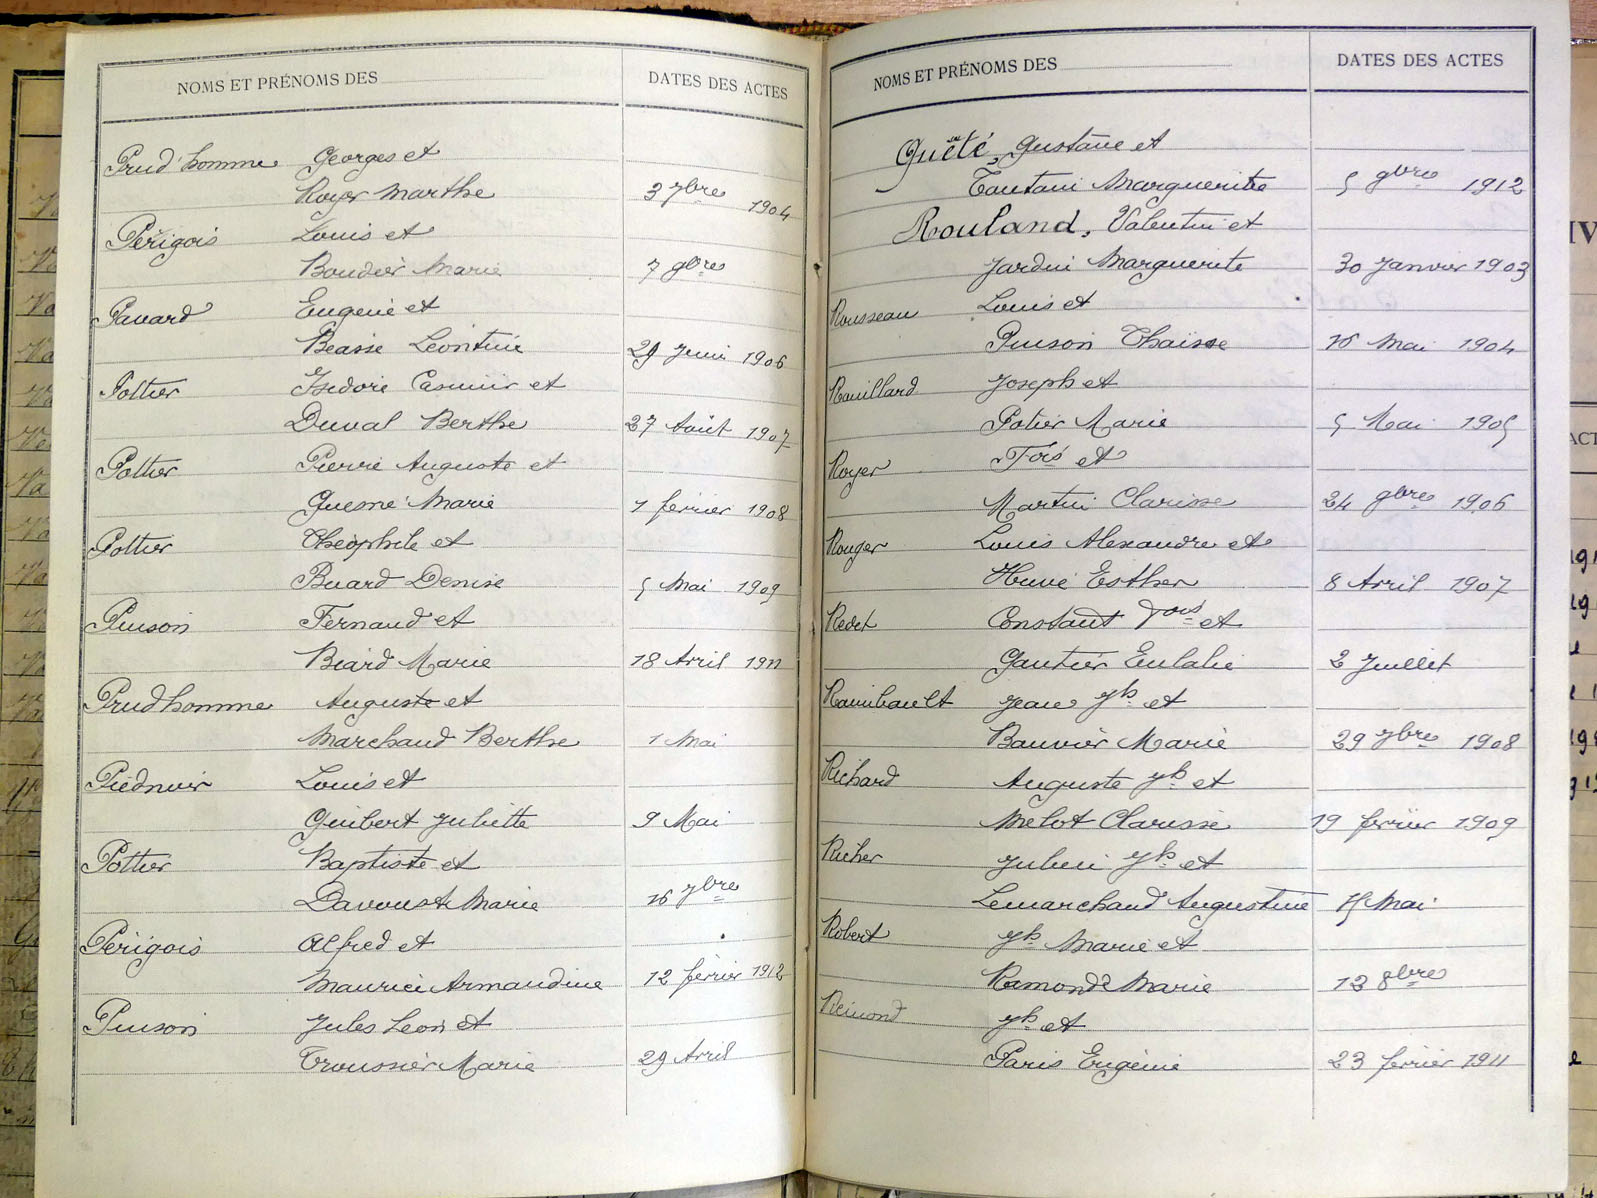 NOMS ET PRÉNOMS DES DATES DES ACTES
Prud'homme Georges et
Royer Marthe 3 7bres 1904
Périgois Louis et
Boudier Marie 7 9bres
Pavard Eugene et
Beasse Léontine 29 Juin 1906
Pottier Isidore Casimir et
Duval Berthe 27 Août 1907
Pottier Pierre Auguste et
Guesné Marie 1 février 1908
Pottier Théophile et
Buard Denise 5 Mai 1909
Pinson Fernand et
Béard Marie 18 Avril 1911
Prudhomme Auguste et
Marchand Berthe 1 Mai
Piednoir Louis et
Guibert Juliette 9 Mai
Pottier Baptiste et
Davoust Marie 16 7bre
Périgois Alfred et
Maurice Armandine 12 février 1912
Pinson Jules Léon et
Troussier Marie 29 Avril
NOMS ET PRÉNOMS DES DATES DES ACTES
Quété, Gustave et
Marguerite 5 9bre 1912
Rouland, Valentin et
Jardin Marguerite 30 Janvier 1903
Rousseau Louis et
Pinson Thaïsse 16 Mai 1904
Rouillard Joseph et
Potier Marie 5 Mai 1905
Royer Fois et
Martin Clarisse 24 9bres 1906
Rouger Louis Alexandre et
Huvé Esther 8 Avril 1907
Constant Fois et
Gautier Eulalie 2 Juillet
Raimbault Jean Jh et
Bauvier Marie 29 7bre 1908
Richard Auguste Jh et
Melot Clarisse 19 février 1909
Richer Julien Jh et
Lemarchand Augustine 15 Mai
Robert Jh Marie et
Ramond Marie 12 8bres
Jh et
Paris Eugénie 23 février 1911